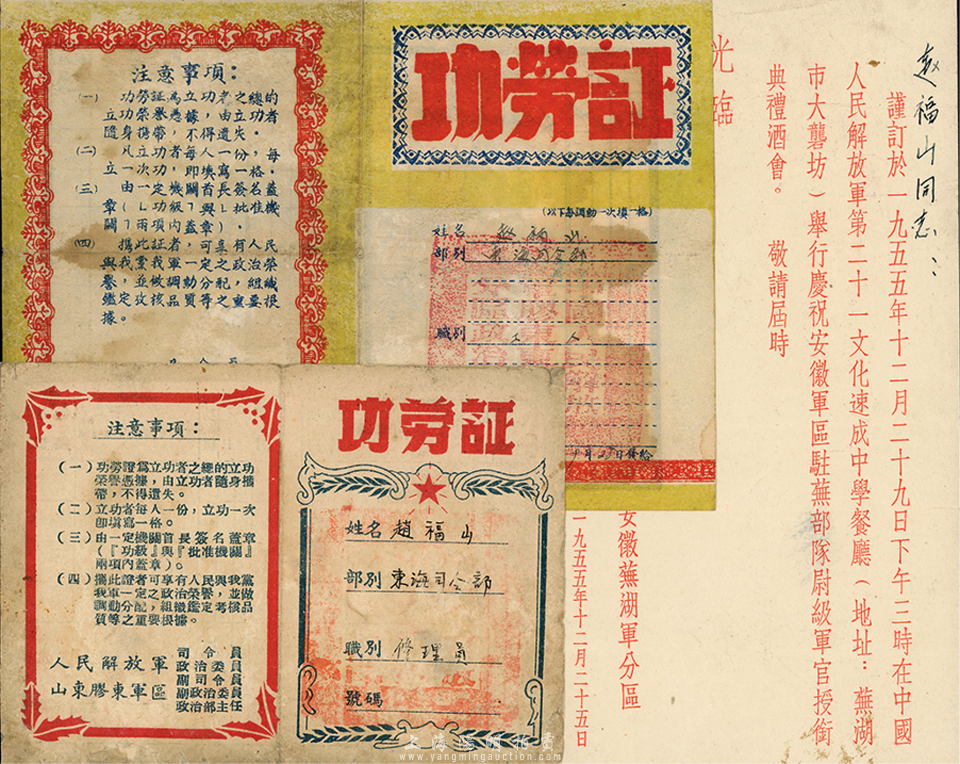 注意事項：
（一） 功勞証為立功者之總的
立功榮譽憑據，由立功者
隨身攜帶，不得遺失。
（二） 凡立功者每人一份，每
立一次功，即填寫一格。
（三） 由一定機關首長簽名蓋
章（「功級」與「批准機
關」兩項內蓋章）。
（四） 攜此証者，可享有人民
與我黨我軍一定之政治榮
譽，並做調動分配，組織
鑑定，考核品質等之重要根
據。
功勞証
（以下每調動一次填一格）
姓名 趙福山
部別 東海司令部
職別 工人
月 日發給
注意事項：
（一）功勞證爲立功者之總的立功
榮譽憑據，由立功者隨身攜
帶，不得遺失。
（二）立功者每人一份，立功一次
卽塡寫一格。
（三）由一定機關首長簽名蓋章
（『功級』與『批准機關』
兩項內蓋章）。
（四）攜此證者可享有人民與我黨
我軍一定之政治榮譽，並做
調動分配，組織鑑定考核品
質等之重要根據。
人民解放軍
山東膠東軍區
司令員
政治委員
副司令員
副政治委員
政治部主任
功劳証
姓名 趙福山
部別 東海司令部
職別 修理員
號碼
趙福山同志：
謹訂於一九五五年十二月二十九日下午三時在中國
人民解放軍第二十一文化速成中學餐廳（地址：蕪湖
市大龔坊）舉行慶祝安徽軍區駐蕪部隊尉級軍官授銜
典禮酒會。 敬請屆時
光臨
安徽蕪湖軍分區
一九五五年十二月二十五日
上海陽明拍賣
www.yangmingauction.com